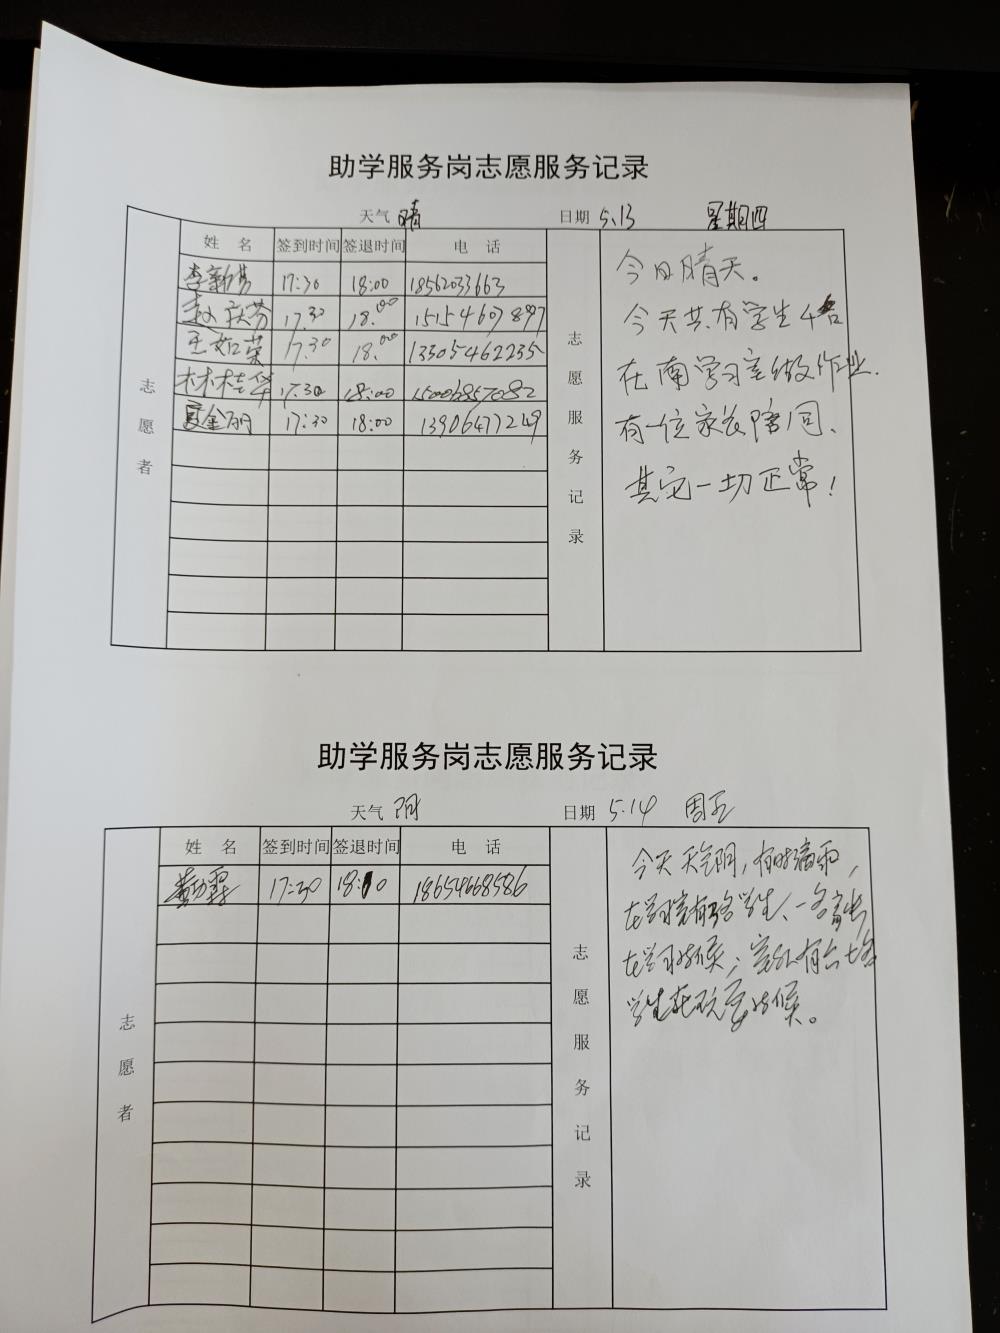 助学服务岗志愿服务记录
天气 晴 日期 5.13 星期四
姓 名 签到时间 签退时间 电 话
李新芳 17:30 18:00 18562033663
赵庆芳 17.30 18.00 15154607897
王如荣 17.30 18.00 13305462235
林桂华 17:30 18:00 15006857082
夏金丽 17:30 18:00 13906477249
志愿者
志愿服务记录
今日晴天。
今天共有学生4名
在南学习室做作业.
有一位家长陪同、
其它一切正常！
助学服务岗志愿服务记录
天气 阴 日期 5.14 周五
姓 名 签到时间 签退时间 电 话
17:30 18:10 18654668586
志愿者
志愿服务记录
今天天气阴，有时滴雨，
在学习室有 学生、一名家长
在学习 候；室外有六七名
学生在玩耍 候。